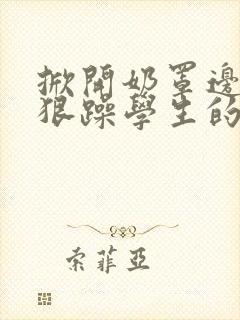 掀開奶罩邊
狠躁學生的
索菲亞